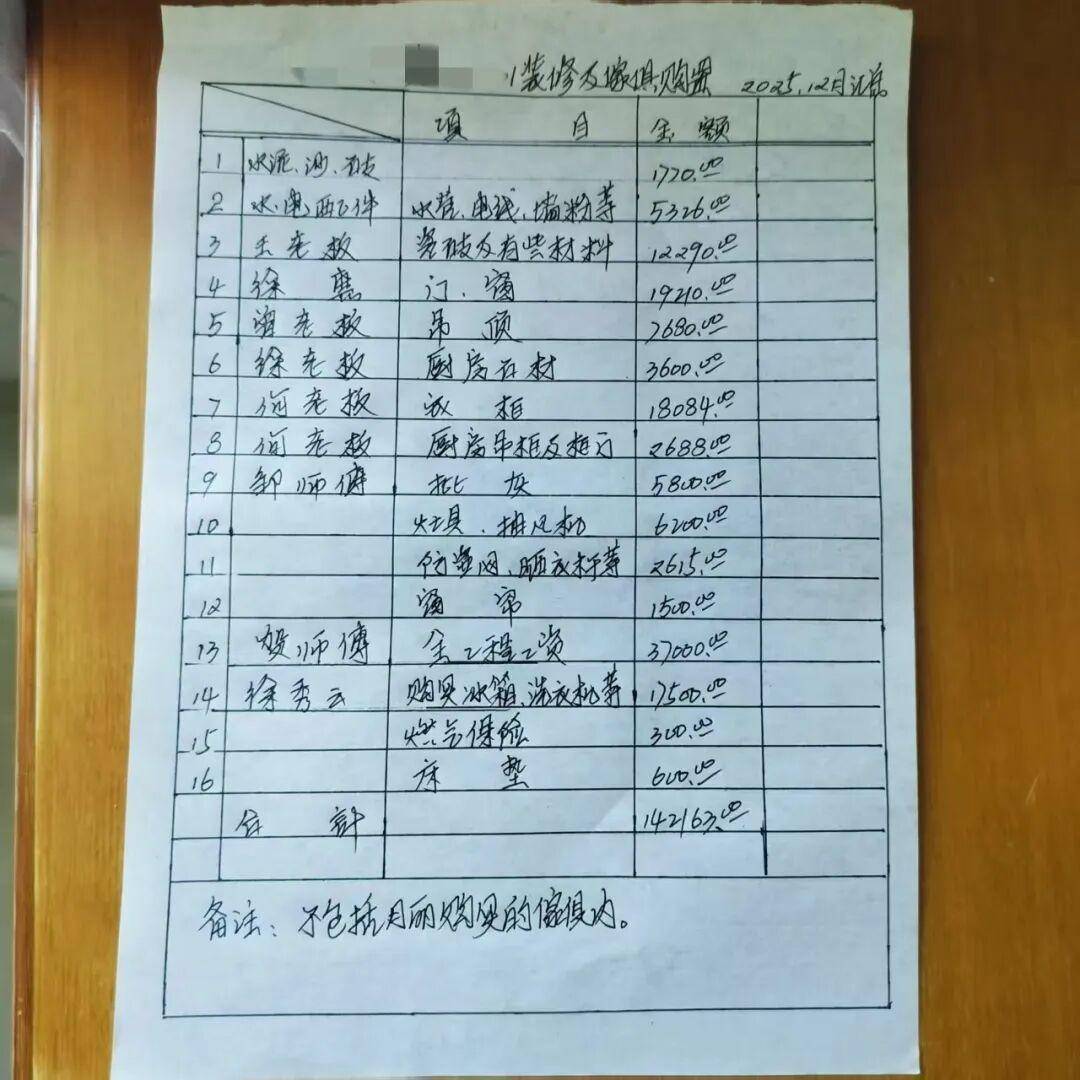 装修及傢俱购置 2025.12月汇总
项 目 金 额
1 水泥、沙、砖 1720.00
2 水、电配件 水管、电线、墙粉等 5326.00
3 王老板 瓷砖及有些材料 12290.00
4 徐 门、窗 19210.00
5 老板 吊 顶 7680.00
6 徐老板 厨房石材 3600.00
7 何老板 衣 柜 18084.00
8 何老板 厨房吊柜及柜门 2688.00
9 师傅 批 灰 5800.00
10 灶具、排风机 6200.00
11 防盗网、晒衣杆等 2615.00
12 窗 帘 1500.00
13 师傅 全工程工资 37000.00
14 徐秀云 购买冰箱、洗衣机等 17500.00
15 燃气保险 300.00
16 床 垫 600.00
合 計 142163.00
备注：不包括月丽购买的傢俱内。